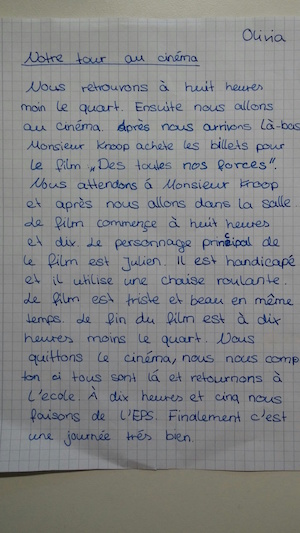 Olivia
Notre tour au cinéma
Nous retrouvons à huit heures
moin le quart. Ensuite nous allons
au cinéma. Après nous arrivons là-bas
Monsieur Knoop achete les billets pour
le film „Des toutes nos forces".
Nous attendons á Monsieur Knoop
et après nous allons dans la salle.
Le film commence à huit heures
et dix. Le personnage principal de
le film est Julien. Il est handicapé
et il utilise une chaise roulante.
Le film est triste et beau en même
temps. Le fin du film est à dix
heures moins le quart. Nous
quittons le cinéma, nous nous comp
ton si tous sont lá et retournons à
L'école. À dix heures et cinq nous
faisons de L'EPS. Finalement c'est
une journée trés bien.